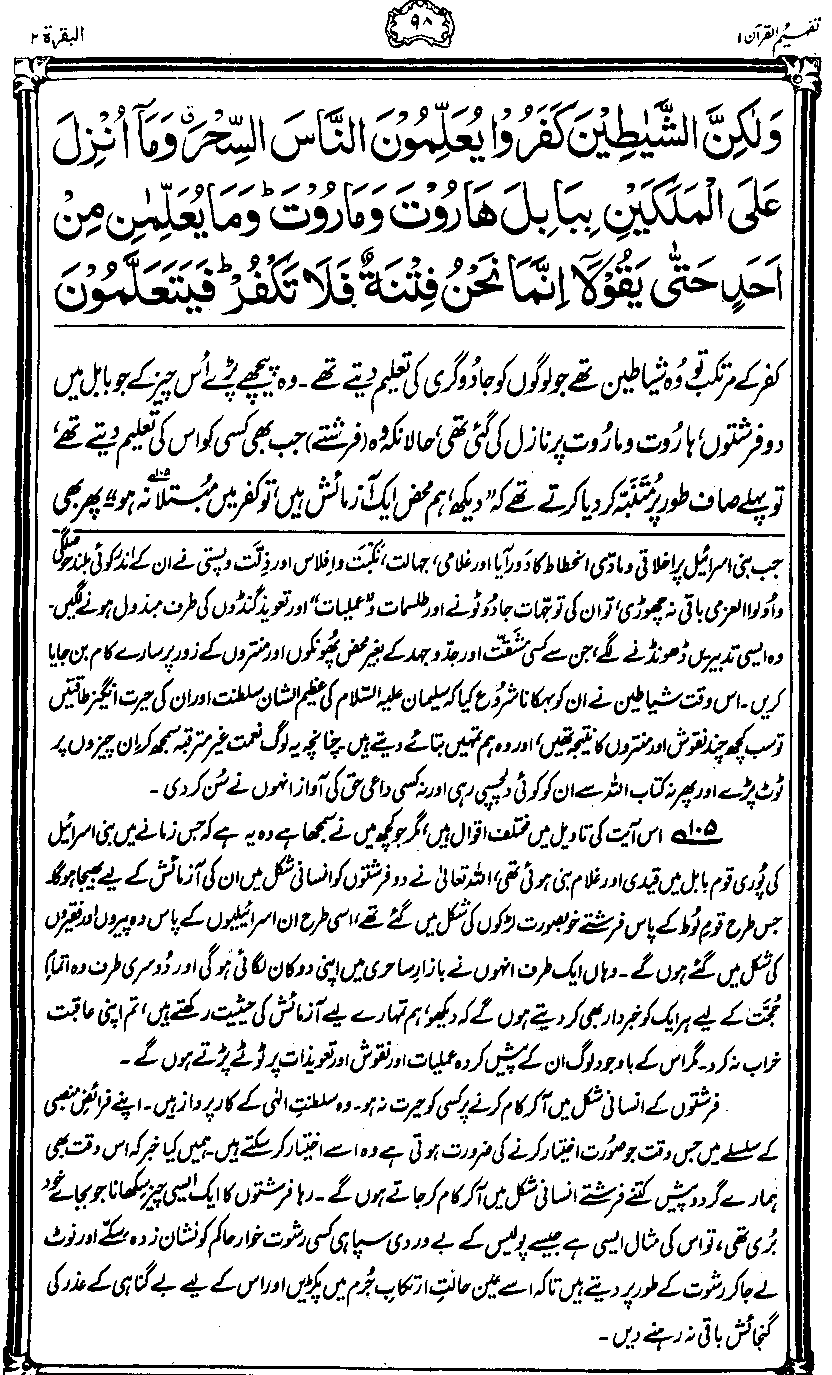 تفہیم القرآن ۱
۹۸
البقرۃ ۲
وَلٰكِنَّ الشَّيٰطِيْنَ كَفَرُوْا يُعَلِّمُوْنَ النَّاسَ السِّحْرَ ۚ وَمَآ اُنْزِلَ
عَلَى الْمَلَكَيْنِ بِبَابِلَ هَارُوْتَ وَمَارُوْتَ ؕ وَمَا يُعَلِّمٰنِ مِنْ
اَحَدٍ حَتّٰى يَقُوْلَآ اِنَّمَا نَحْنُ فِتْنَةٌ فَلَا تَكْفُرْ ؕ فَيَتَعَلَّمُوْنَ
کفر کے مرتکب تو وُہ شیاطین تھے جو لوگوں کو جادُوگری کی تعلیم دیتے تھے۔ وہ پیچھے پڑے اُس چیز کے جو بابل میں
دو فرشتوں، ہارُوت و مارُوت پر نازل کی گئی تھی، حالانکہ وہ (فرشتے) جب بھی کسی کو اس کی تعلیم دیتے تھے،
تو پہلے صاف طور پر مُتَنَبِّہ کر دیا کرتے تھے کہ ”دیکھ، ہم محض ایک آزمائش ہیں، تو کفر میں مُبتلا نہ ہو“۱۰۵ پھر بھی
جب بنی اسرائیل پر اخلاقی و مادّی انحطاط کا دَور آیا اور غلامی، جہالت، نکبَت و اِفلاس اور ذِلّت و پستی نے ان کے اندر کوئی بلند حوصلگی
و اُولوا العزمی باقی نہ چھوڑی، تو ان کی توجّہات جادُو ٹونے اور طلسمات و ”عملیات“ اور تعویذ گنڈوں کی طرف مبذول ہونے لگیں۔
وہ ایسی تدبیریں ڈھونڈنے لگے، جن سے کسی مشقّت اور جدّوجہد کے بغیر محض پُھونکوں اور منتروں کے زور پر سارے کام بن جایا
کریں۔ اس وقت شیاطین نے ان کو بہکانا شروع کیا کہ سلیمان علیہ السّلام کی عظیم الشان سلطنت اور ان کی حیرت انگیز طاقتیں
تو سب کچھ چند نقوش اور منتروں کا نتیجہ تھیں، اور وہ ہم تمہیں بتائے دیتے ہیں۔ چنانچہ یہ لوگ نعمت غیر مترقبہ سمجھ کر ان چیزوں پر
ٹوٹ پڑے اور پھر نہ کتاب اللہ سے ان کو کوئی دلچسپی رہی اور نہ کسی داعیِ حق کی آواز انہوں نے سُن کر دی۔
۱۰۵ اس آیت کی تاویل میں مختلف اقوال ہیں، مگر جو کچھ میں نے سمجھا ہے وہ یہ ہے کہ جس زمانے میں بنی اسرائیل
کی پُوری قوم بابل میں قیدی اور غلام بنی ہوئی تھی، اللہ تعالیٰ نے دو فرشتوں کو انسانی شکل میں ان کی آزمائش کے لیے بھیجا ہوگا۔
جس طرح قومِ لُوط کے پاس فرشتے خوبصورت لڑکوں کی شکل میں گئے تھے، اسی طرح ان اسرائیلیوں کے پاس وہ پیروں اور فقیروں
کی شکل میں گئے ہوں گے۔ وہاں ایک طرف انہوں نے بازارِ ساحری میں اپنی دوکان لگائی ہوگی اور دُوسری طرف وہ اتمامِ
حُجّت کے لیے ہر ایک کو خبردار بھی کر دیتے ہوں گے کہ دیکھو، ہم تمہارے لیے آزمائش کی حیثیت رکھتے ہیں، تم اپنی عاقبت
خراب نہ کرو۔ مگر اس کے باوجود لوگ ان کے پیش کردہ عملیات اور نقوش اور تعویذات پر ٹوٹے پڑتے ہوں گے۔
فرشتوں کے انسانی شکل میں آ کر کام کرنے پر کسی کو حیرت نہ ہو۔ وہ سلطنتِ الٰہی کے کار پرداز ہیں۔ اپنے فرائضِ منصبی
کے سلسلے میں جس وقت جو صُورت اختیار کرنے کی ضرورت ہوتی ہے وہ اسے اختیار کر سکتے ہیں۔ ہمیں کیا خبر کہ اس وقت بھی
ہمارے گرد و پیش کتنے فرشتے انسانی شکل میں آ کر کام کر جاتے ہوں گے۔ رہا فرشتوں کا ایک ایسی چیز سکھانا جو بجائے خود
بُری تھی، تو اس کی مثال ایسی ہے جیسے پولیس کے بے وردی سپاہی کسی رشوت خوار حاکم کو نشان زدہ سکّے اور نوٹ
لے جا کر رشوت کے طور پر دیتے ہیں تاکہ اسے عین حالتِ ارتکابِ جُرم میں پکڑیں اور اس کے لیے بے گناہی کے عذر کی
گنجائش باقی نہ رہنے دیں۔